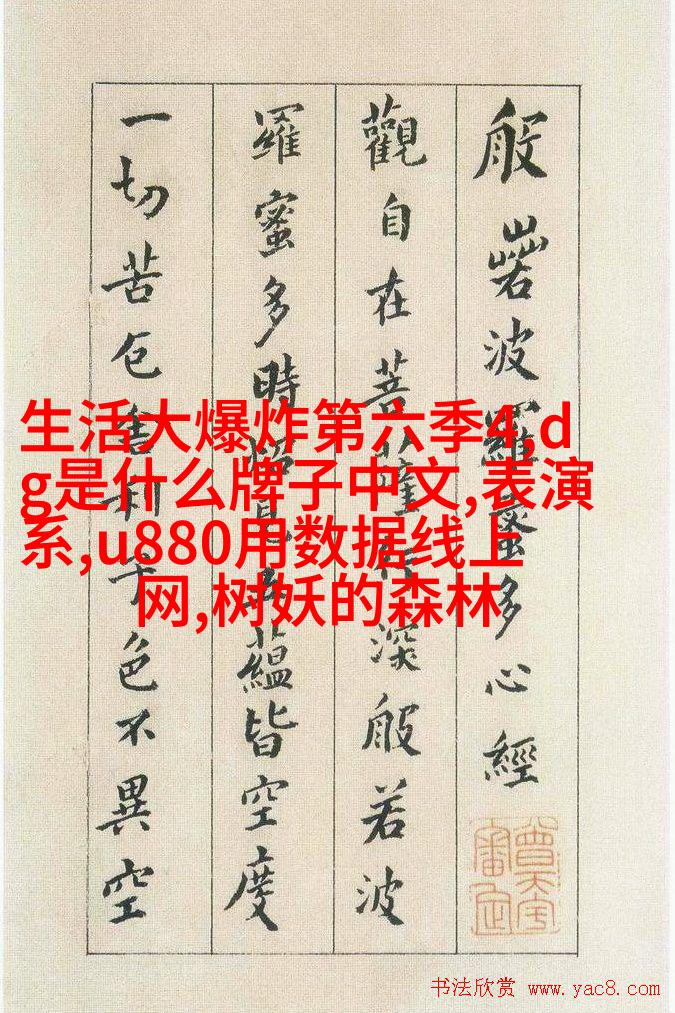 般若波羅蜜多心經
觀自在菩薩行深般若波
羅蜜多時照見五蘊皆空度
一切苦厄舍利子色不異空
生活大爆炸第六季4,d
g是什么牌子中文,表演
系,u880用数据线上
网,树妖的森林
书法欣赏 www.yac8.com